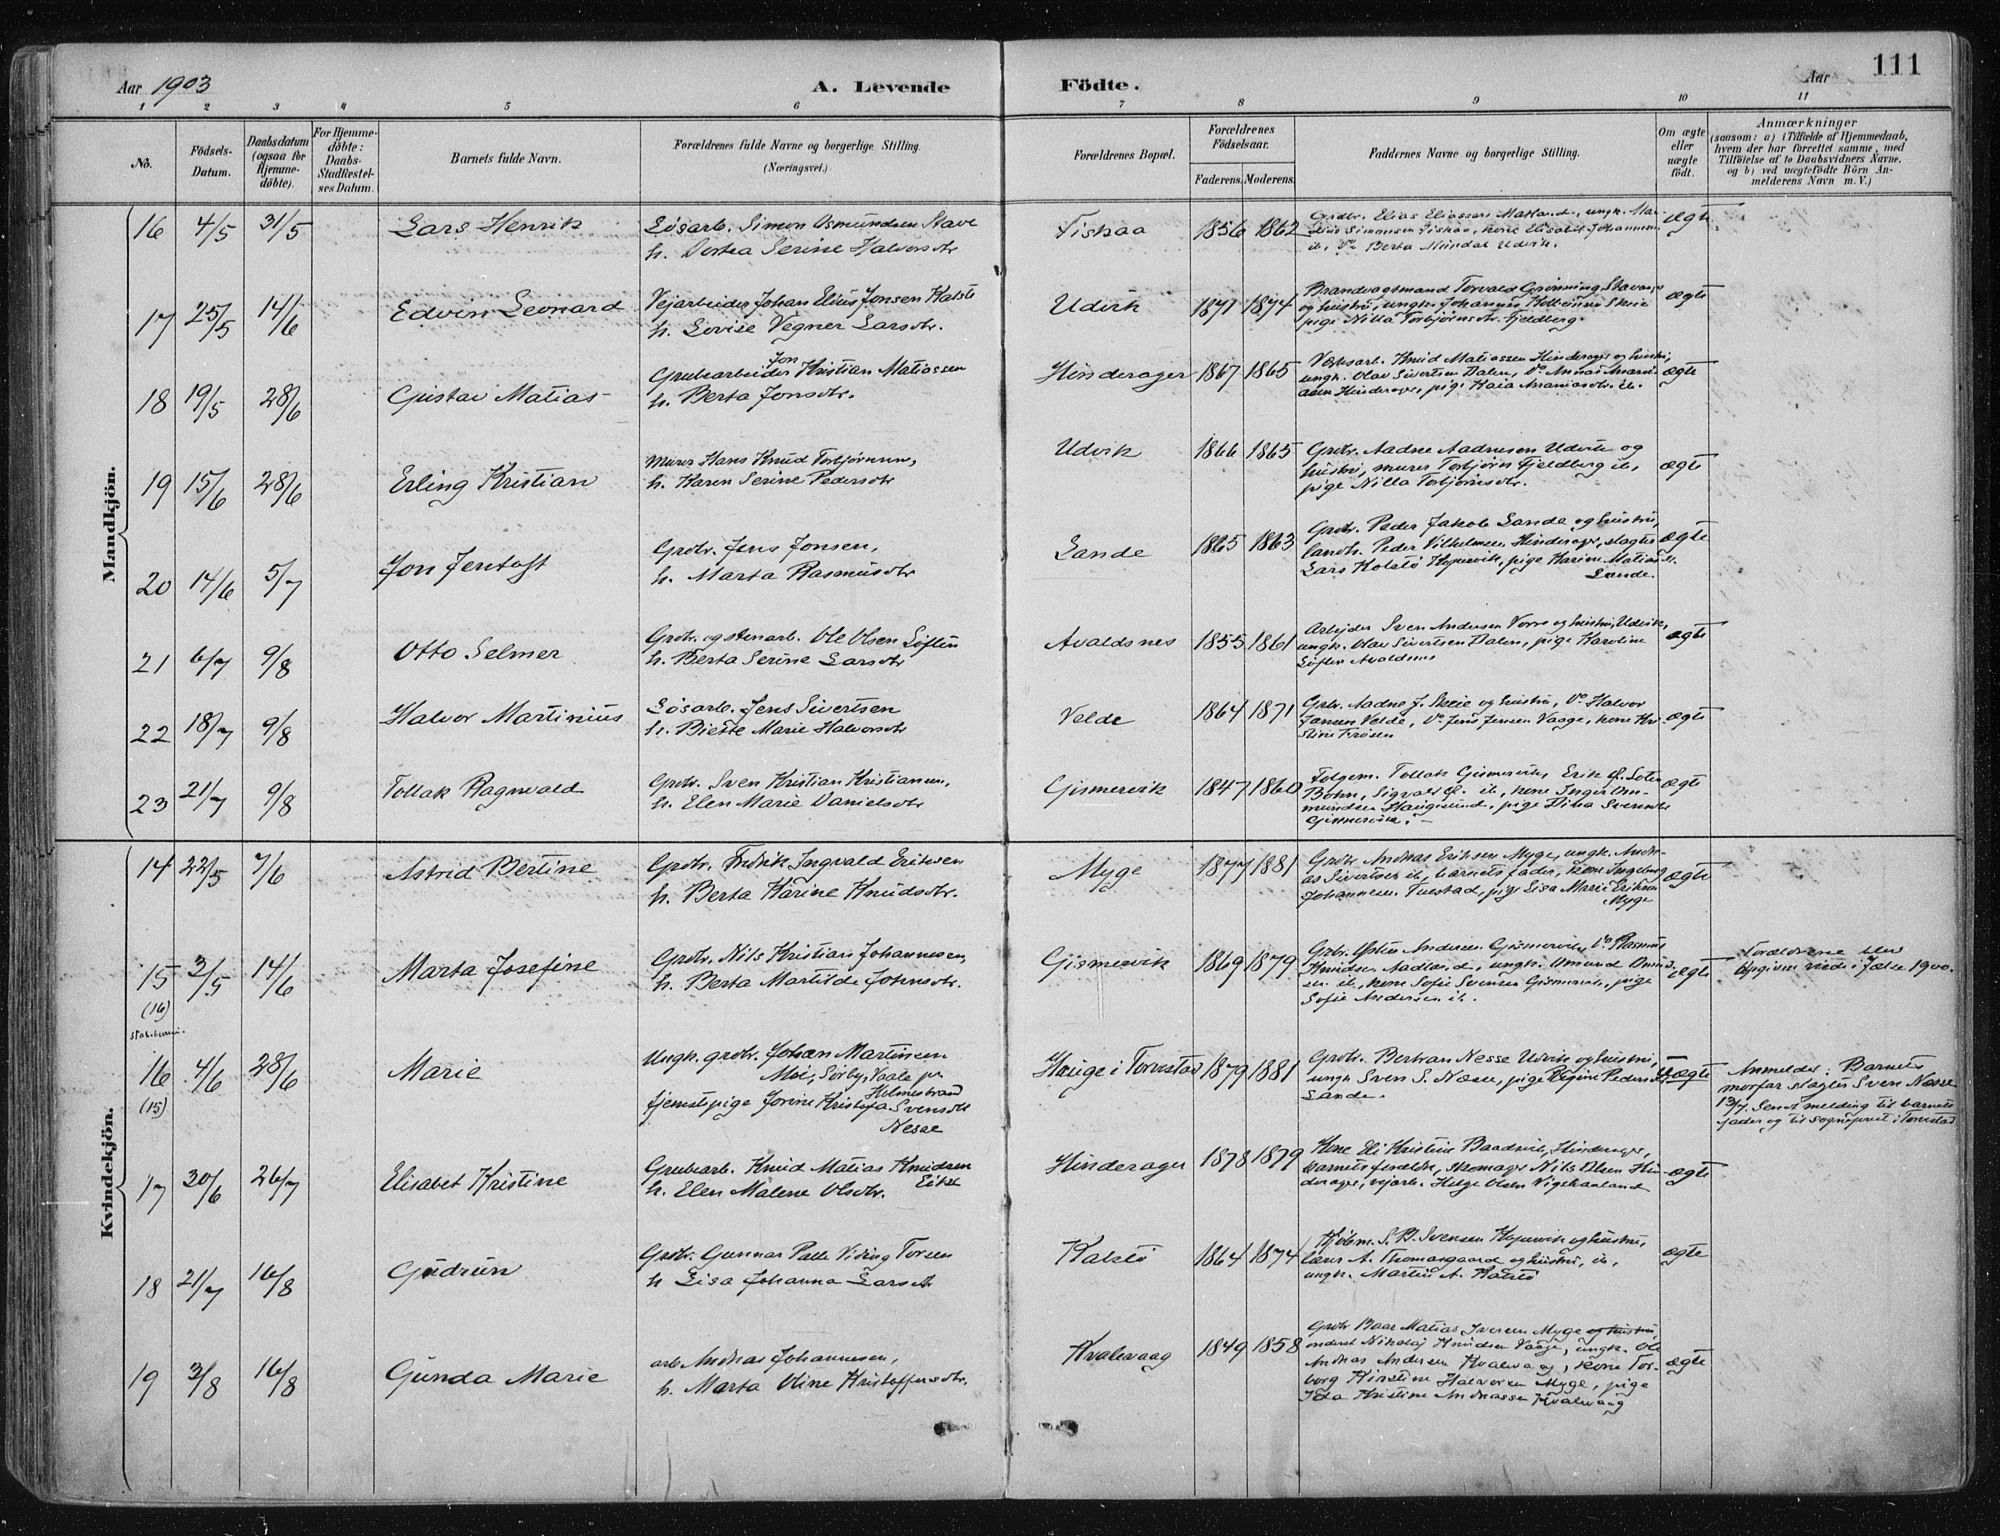 Aar 1903 A. Levende Födte. Aar 111
1 2 3 4 5 6 7 8 9 10 11
Nö. Födsels-Datum. Daabsdatum (ogsaa for Hjemme-döbte). For Hjemme-döbte: Daabs-Stadfæstel-ses Datum. Barnets fulde Navn. Forældrenes fulde Navne og borgerlige Stilling. (Næringsvei.) Forældrenes Bopæl. Forældrenes Födselsaar. Faderens. Moderens. Faddernes Navne og borgerlige Stilling. Om ægte eller uægte födt. Anmærkninger (saasom: a) i Tilfælde af Hjemmedaab, hvem der har forrettet samme, med Tilföielse af to Daabsvidners Navne, og b) ved uægtefödte Börn An-melderens Navn m. V.)
Mandkjön.
16 4/5 31/5 Lars Henrik Løsarb. Simon Osmundsen Stave
h. Dortea Serine Halvorsdtr
Fiskaa 1856 1862 Grdbr. Elias Eliassen Matland, ungk.
Simonsen Fiskaa, kone Elisabet Johannesen
ib, Berta Mundal Udvik. ægte
17 25/5 14/6 Edvin Leonard Vejarbeider Johan Elius Jonsen Kalstø
h. Lovise Vegner Larsdtr.
Udvik 1871 1874 Brandvagtsmand Torvald Grønning Stavanger
og hustru, ungk. Johannes Skeie
pige Nilla Torbjørnsdtr. Fjeldberg. ægte
18 19/5 28/6 Gustav Matias Grubearbeider Jon Kristian Matiassen
h. Berta Jonsdtr.
Hinderager 1867 1865 Knud Matiassen Hinderager og hustru,
ungk. Olav Sivertsen Dalen,
Hinderager, pige Ananiasdtr. ib. ægte
19 15/6 28/6 Erling Kristian Murer Hans Knud Torbjørnsen,
h. Karen Serine Pedersdtr
Udvik 1866 1865 Grdbr. Aadne Aadnesen Udvik og
hustru, murer Torbjørn Fjeldberg ib,
pige Nilla Torbjørnsdtr. ægte
20 14/6 5/7 Jon Jentoft Grdbr. Jens Jonsen,
h. Marta Rasmusdtr
Sande 1865 1863 Grdbr. Peder Jakob Sande og hustru,
landh. Peder Vilhelmsen Hinderager, slagter
Lars Kolstø Kopervik, pige Karine Matiasdtr.
Sande. ægte
21 6/7 9/8 Otto Selmer Grdbr. og stenarb. Ole Olsen Løften
h. Berta Serine Larsdtr
Avaldsnes 1855 1861 Arbejder Sven Andersen Vorre og hustru, Udvik,
ungk. Olav Sivertsen Dalen, pige Karoline
Løften Avaldsnes ægte
22 18/7 9/8 Halvor Martinius Løsarb. Jens Sivertsen
h. Birte Marie Halvorsdtr
Velde 1864 1871 Grbr. Aadne J. Skeie og hustru, Do Halvor
Jansen Velde, Do Jens Jensen Vaage, kone
ægte
23 21/7 9/8 Tollak Ragnvald Grdbr. Sven Kristian Kristiansen,
h. Elen Marie Danielsdtr
Gismervik 1847 1860 Folgem. Tollak Gismervik, Erik
Bøhn, Sigvald ib, kone Inger
Haugesund, pige Dina Svensdtr
Gismervik. ægte
Kvindekjön.
14 22/5 7/6 Astrid Bertine Grdbr. Fredrik Ingvald Eriksen
h. Berta Karine Knudsdtr.
Myge 1877 1881 Grdbr Andreas Eriksen Myge, ungk.
Sivertsen ib, barnets fader, kone Ingeborg
Johannesen Tuestad, pige Lisa Marie Eriksen
Myge ægte
15 (16) 3/5 14/6 Marta Josefine Grdbr. Nils Kristian Johannesen,
h. Berta Martilde Johnsdtr.
Gismervik 1869 1879 Grbr. Andersen Gismervik, Do Rasmus
Knudsen Aadland, ungk. Omund
ib, kone Sofie Svensen Gismervik, pige
Sofie Andersen ib. ægte Forældrene blev
1900.
16 (15) 4/6 28/6 Marie Ungk. grdbr. Johan Martinsen
Moi, Sørby, Vaale pr
Holmestrand
tjenestpige Jorine Kristofa Svensdtr
Nesse
Hauge i Torvestad 1879 1881 Grdbr. Bertran Nesse Udvik og hustru,
ungk Sven S. Næsse, pige Regine Pedersdtr
Sande. Uægte Anmelder: Barnets
morfar slagter Sven Næsse
13/7. Sendt melding til barnets
fader og til sogneprest i Torvestad
17 30/6 26/7 Elisabet Kristine Grubearb. Knud Matias Knudsen
Eike
h. Elen Malene Olsdtr.
Hinderager 1878 1879 Kone Eli Kristine Baadsvik, Hinderager,
barnets forældre, skomager Nils Olsen Hin-
derager, vejarb. Helge Olsen Vigskaaland ægte
18 21/7 16/8 Gudrun Grdbr. Gunnar Palle Viding Torsen
h Lisa Johanna Larsdtr
Kalstø 1864 1874 Kjøbm. S. B. Svensen Kopervik og hustru,
lærer A. Thomasgaard og hustru, ib,
ungk. Martin A. Kalstø ægte
19 3/8 16/8 Gunda Marie arb. Andreas Johannesen,
h. Marta Oline Kristoffersdtr.
Kvalevaag 1849 1858 Grdbr Baar Matias Iversen Myge og hustru,
Nikolaj Knudsen Vaage, ungk. Ole
Andreas Andersen Kvalevaag, kone Tor-
borg Kirstine Halvorsen Myge, pige
Ida Kristine Andreassen Kvalevaag ægte